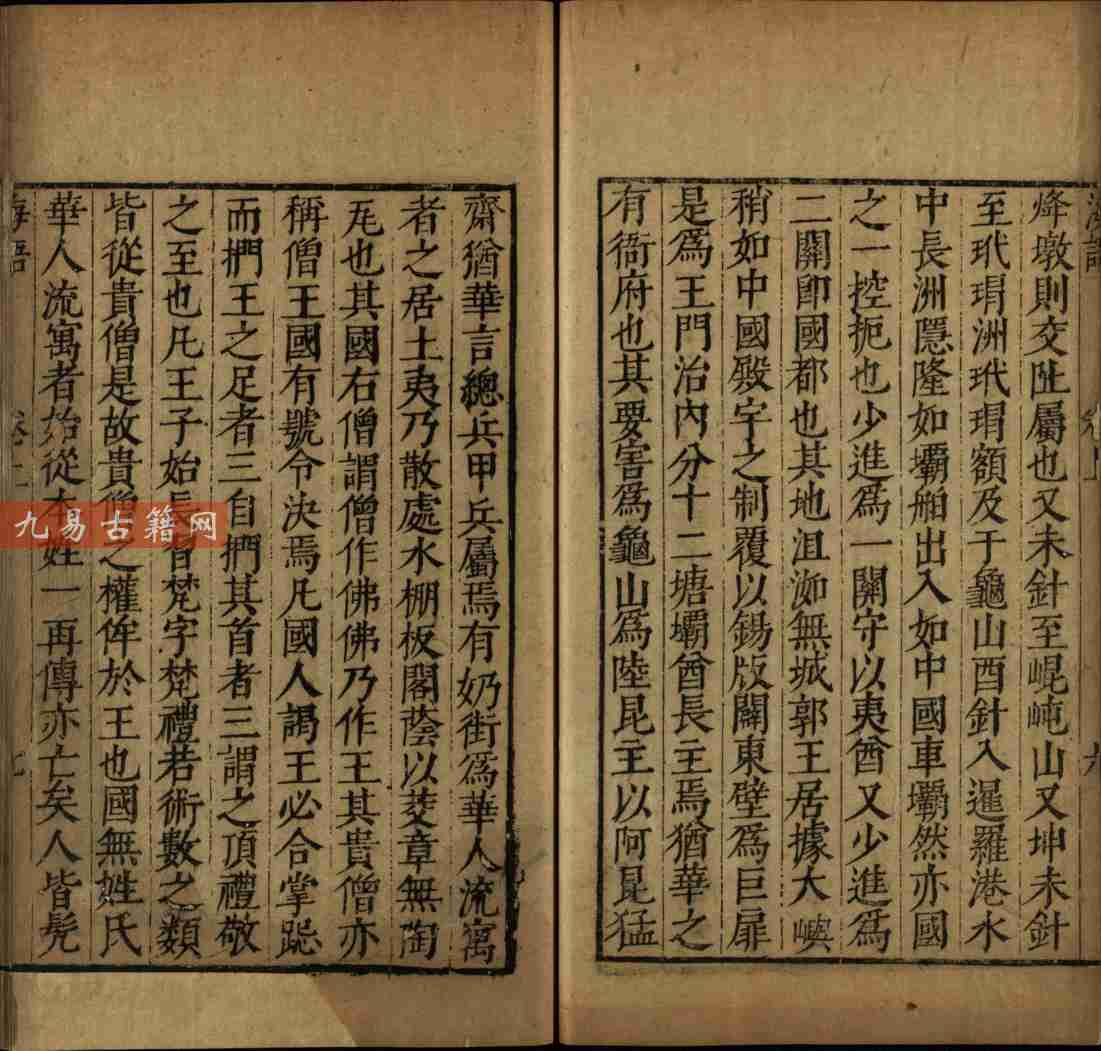 海語
卷上
烽墩則交阯屬也又未針至崐屯山又坤未針
至玳瑁洲玳瑁額及于龜山酉針入暹羅港水
中長洲隱隆如壩舶出入如中國車壩然亦國
之一控扼也少進爲一關守以夷酋又少進爲
二關即國都也其地沮洳無城郭王居據大嶼
稍如中國殿宇之制覆以錫版闢東壁爲巨扉
是爲王門治内分十二塘壩酋長主焉猶華之
有衙府也其要害爲龜山爲陸昆主以阿昆猛
齋猶華言總兵甲兵屬焉有奶街爲華人流寓
者之居土夷乃散處水棚板閣蔭以茭草無陶
瓦也其國右僧謂僧作佛佛乃作王其貴僧亦
稱僧王國有號令決焉凡國人謁王必合掌跽
而捫王之足者三自捫其首者三謂之頂禮敬
之至也凡王子始長習梵字梵禮若術數之類
皆從貴僧是故貴僧之權侔於王也國無姓氏
華人流寓者始從本姓一再傳亦亡矣人皆髡
海語
卷上
七
九易古籍网